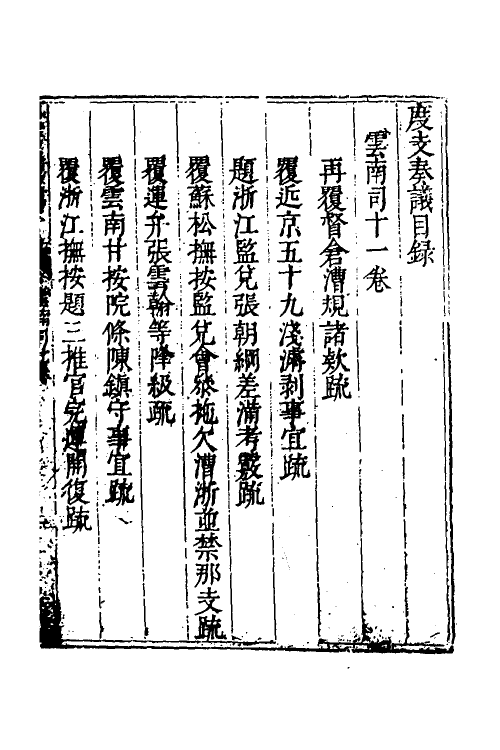 度支奏議目録
雲南司十一卷
再覆督倉漕規諸欵疏
覆近京五十九淺濟剥事宜疏
題浙江監兌張朝綱差滿考覈疏
覆蘇松撫按監兌會叅拖欠漕浙並禁那支疏
覆運弁張雲翰等降級疏
覆雲南甘按院條陳鎮守事宜疏
覆浙江撫按題三推官兌運開復疏